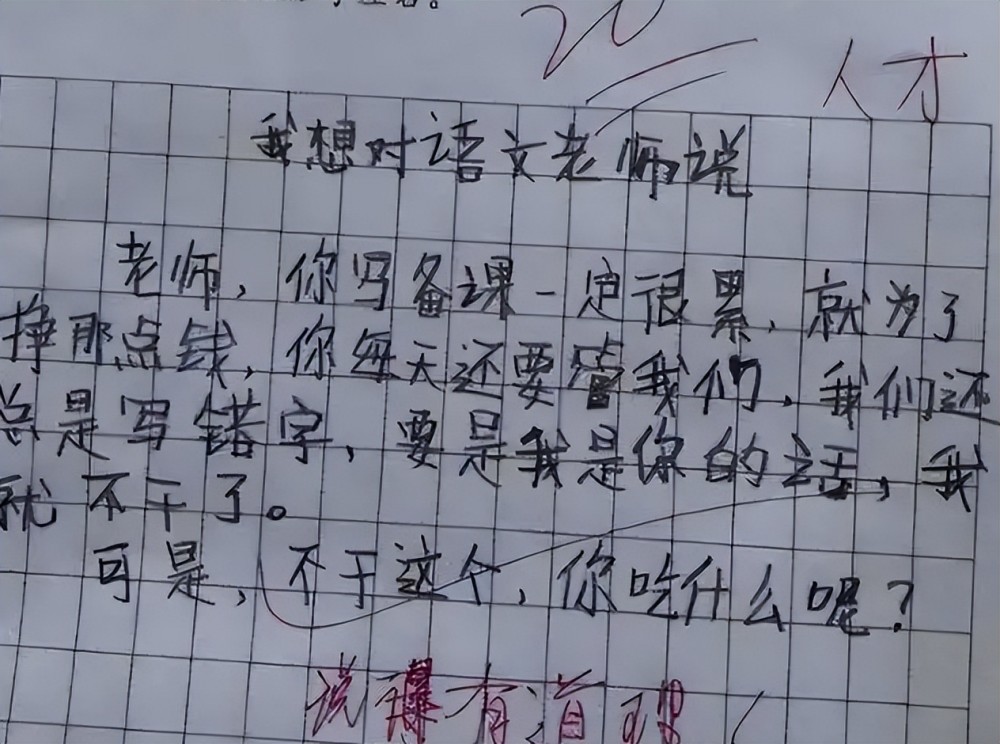 20
人才
我想对语文老师说
老师，你写备课一定很累，就为了
挣那点钱，你每天还要管我们，我们还
总是写错字，要是我是你的话，我
就不干了。
可是，不干这个，你吃什么呢？
说得有道理！